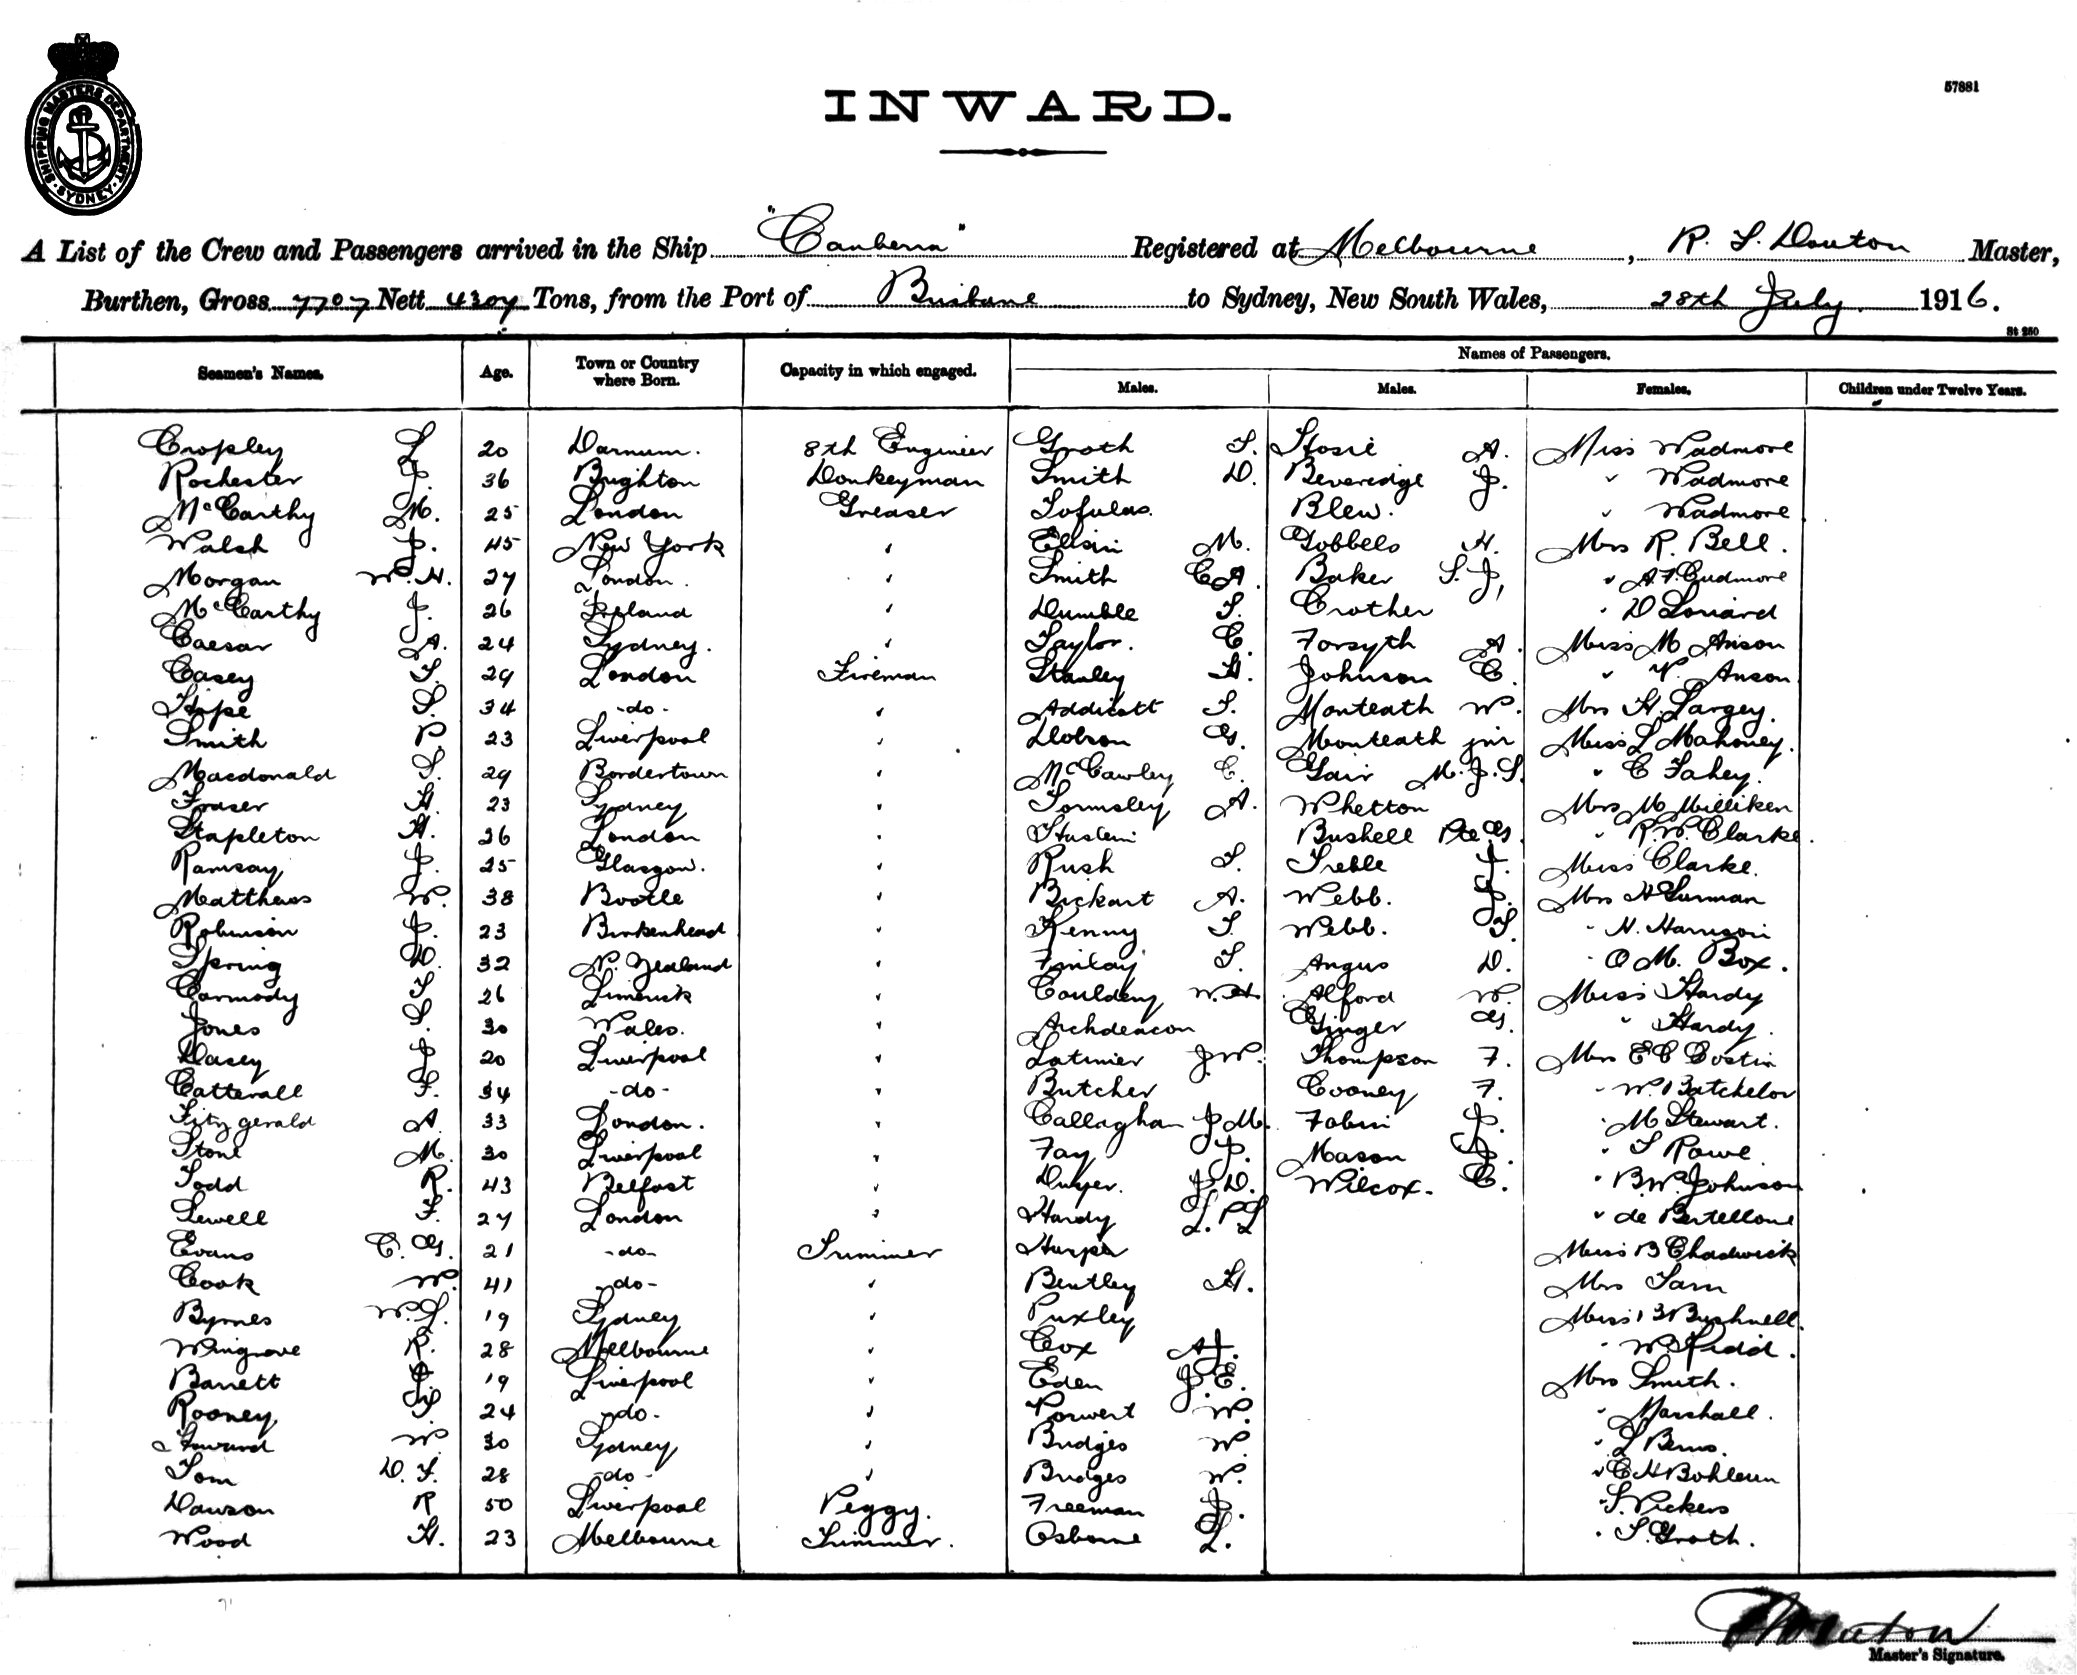 SHIPPING MASTERS DEPARTMENT
SYDNEY
57881
INWARD.
A List of the Crew and Passengers arrived in the Ship "Canberra" Registered at Melbourne, R. S. Master,
Burthen, Gross 7707 Nett 4307 Tons, from the Port of Brisbane to Sydney, New South Wales, 28th July 1916.
St 250
Seamen's Names. Age. Town or Country where Born. Capacity in which engaged. Names of Passengers.
Males. Males. Females. Children under Twelve Years.
Cropley L 20 Darnum. 8th Engineer Groth S. Hosie A. Miss Wadmore
Rochester J. 36 Brighton Donkeyman Smith D. Beveredge J. " Wadmore
McCarthy M. 25 London Greaser Blew. " Wadmore
Walsh J. 45 New York " M. Gobbels H. Mrs R. Bell.
Morgan W. H. 27 London. " Smith C A. Baker S. J, " A. F. Cudmore
McCarthy J. 26 Ireland " Dumble S. Crother " D
Caesar A. 24 Sydney. " Taylor. C. Forsyth A. Miss M Anson
Casey T. 29 London Fireman Stanley H. Johnson C. " Anson
Hope S. 34 -do- " Addicott S. Monteath W. Mrs H. Largey.
Smith P. 23 Liverpool " Dobson G. Monteath jnr Miss L Mahoney.
Macdonald S. 29 Bordertown " McCawley C. Gair M. J. S. " C Fahey.
Fraser H. 23 Sydney " A. Whetton Mrs M Milliken
Stapleton H. 26 London " Bushell Pte G. " R. W. Clarke.
Ramsay J. 25 Glasgow. " Rush S. Treble J. Miss Clarke.
Matthews W. 38 Bootle " Bickart A. Webb. J. Mrs H
Robinson J. 23 Birkenhead " Kenny T. Webb. S. " N. Harrison
Spring D. 32 N. Zealand " Finlay S. Angus D. " O M. Box.
Carmody T 26 Limerick " W. H. Alford W. Miss Hardy
Jones S. 30 Wales. " Archdeacon Ginger G. " Hardy.
Dasey J 20 Liverpool " Latimer J. W. Thompson F. Mrs E C Costin
Catterall F. 34 -do- " Butcher Cooney F. " W. Batchelor
Fitzgerald A 33 London. " Callaghan J M. J. " M Stewart.
Stone M. 30 Liverpool " Fay J. Mason J. " S Rowe
Todd R. 43 Belfast " Dwyer. J. D. Wilcox. C. " B. W. Johnson
Sewell F. 27 London " Hardy " de Bertellone
Evans C. G. 21 -do- Trimmer Harper Miss B Chadwick
Cook W. 41 -do- " Bentley H. Mrs Sam
Byrnes W. S. 19 Sydney " Puxley Miss B Bushnell.
Wingrove R. 28 Melbourne " Cox A J. " W. Kidd.
Barrett J. 19 Liverpool " Eden J. E. Mrs Smith.
Rooney T 24 -do- " W. " Marshall.
W 30 Sydney " Bridges W. " L
Tom D. F. 28 -do- " Bridges W. " C H
Dawson R 50 Liverpool Peggy. Freeman J. " S. Vickers
Wood H. 23 Melbourne Trimmer. Osborne L. " S. Groth.
Master's Signature.